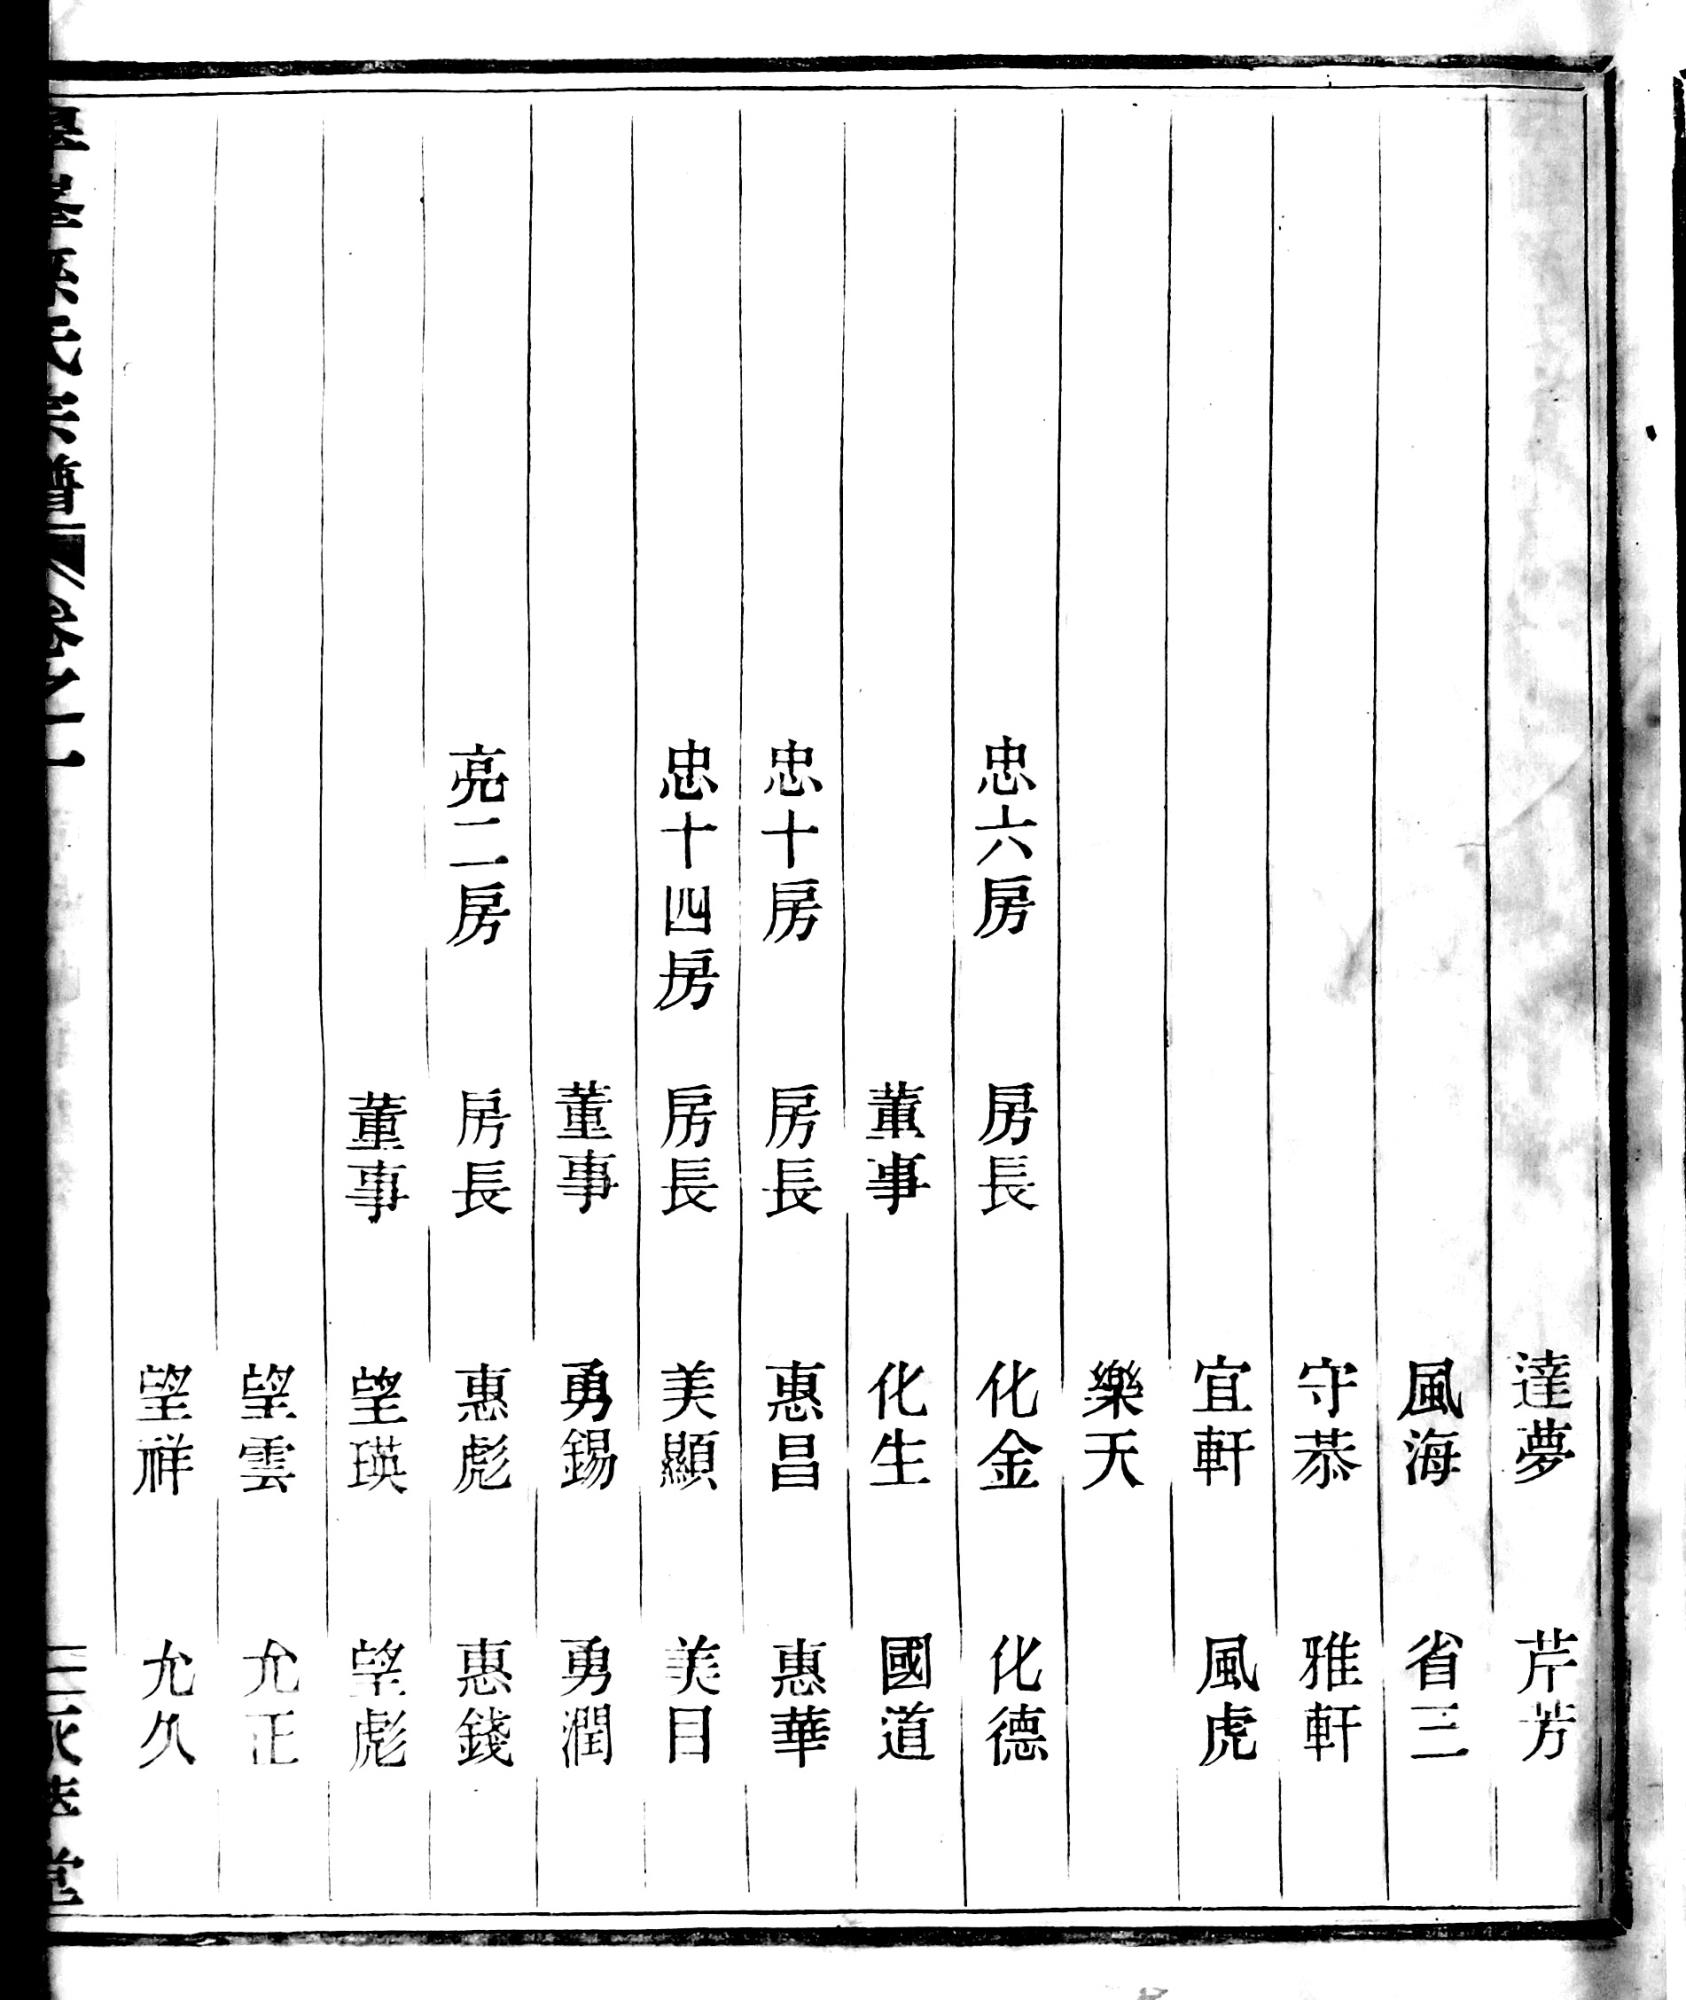 達夢 芹芳
風海 省三
守恭 雅軒
宜軒 風虎
樂天
忠六房 房長 化金 化德
董事 化生 國道
忠十房 房長 惠昌 惠華
忠十四房 房長 美顯 美目
董事 勇錫 勇潤
亮二房 房長 惠彪 惠錢
董事 望瑛 望彪
望雲 允正
望祥 允久
氏宗譜 卷之一 堂